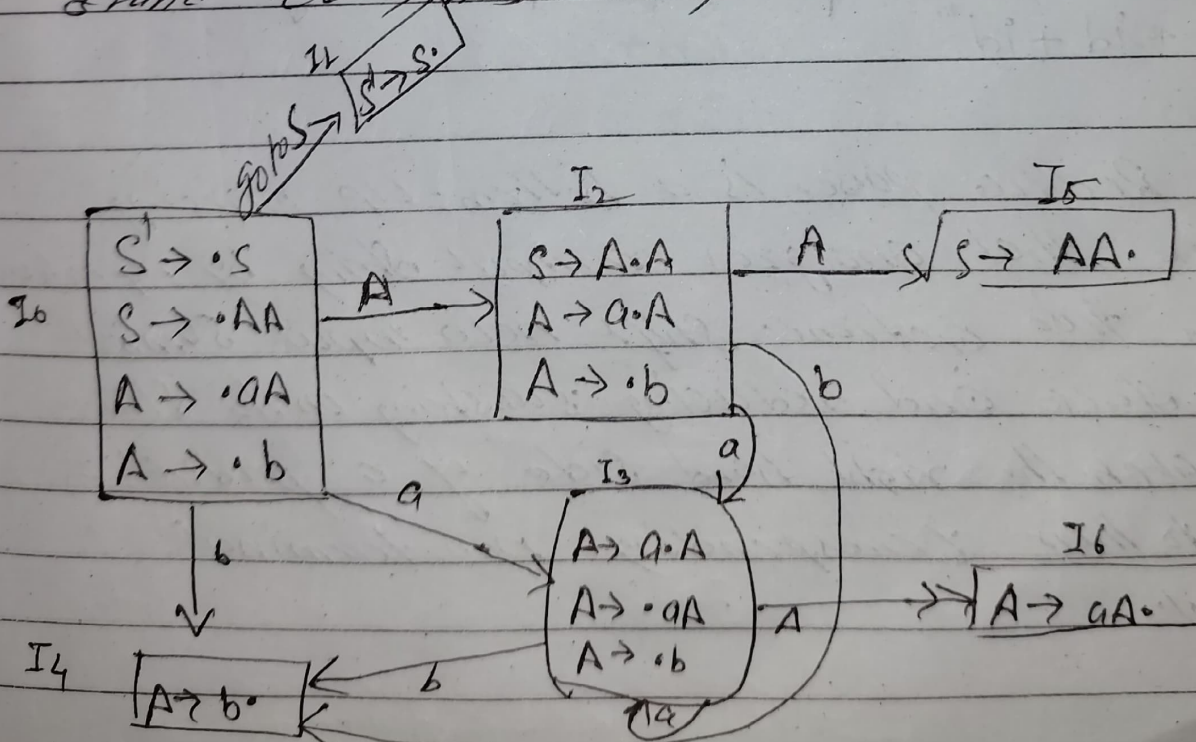 I1
S' → S•
goto S
I0
S' → •S
S → •AA
A → •aA
A → •b
A
I2
S → A•A
A → a•A
A → •b
A
I5
S → AA•
b
a
a
b
I3
A → a•A
A → •aA
A → •b
a
A
I6
A → aA•
b
I4
A → b•